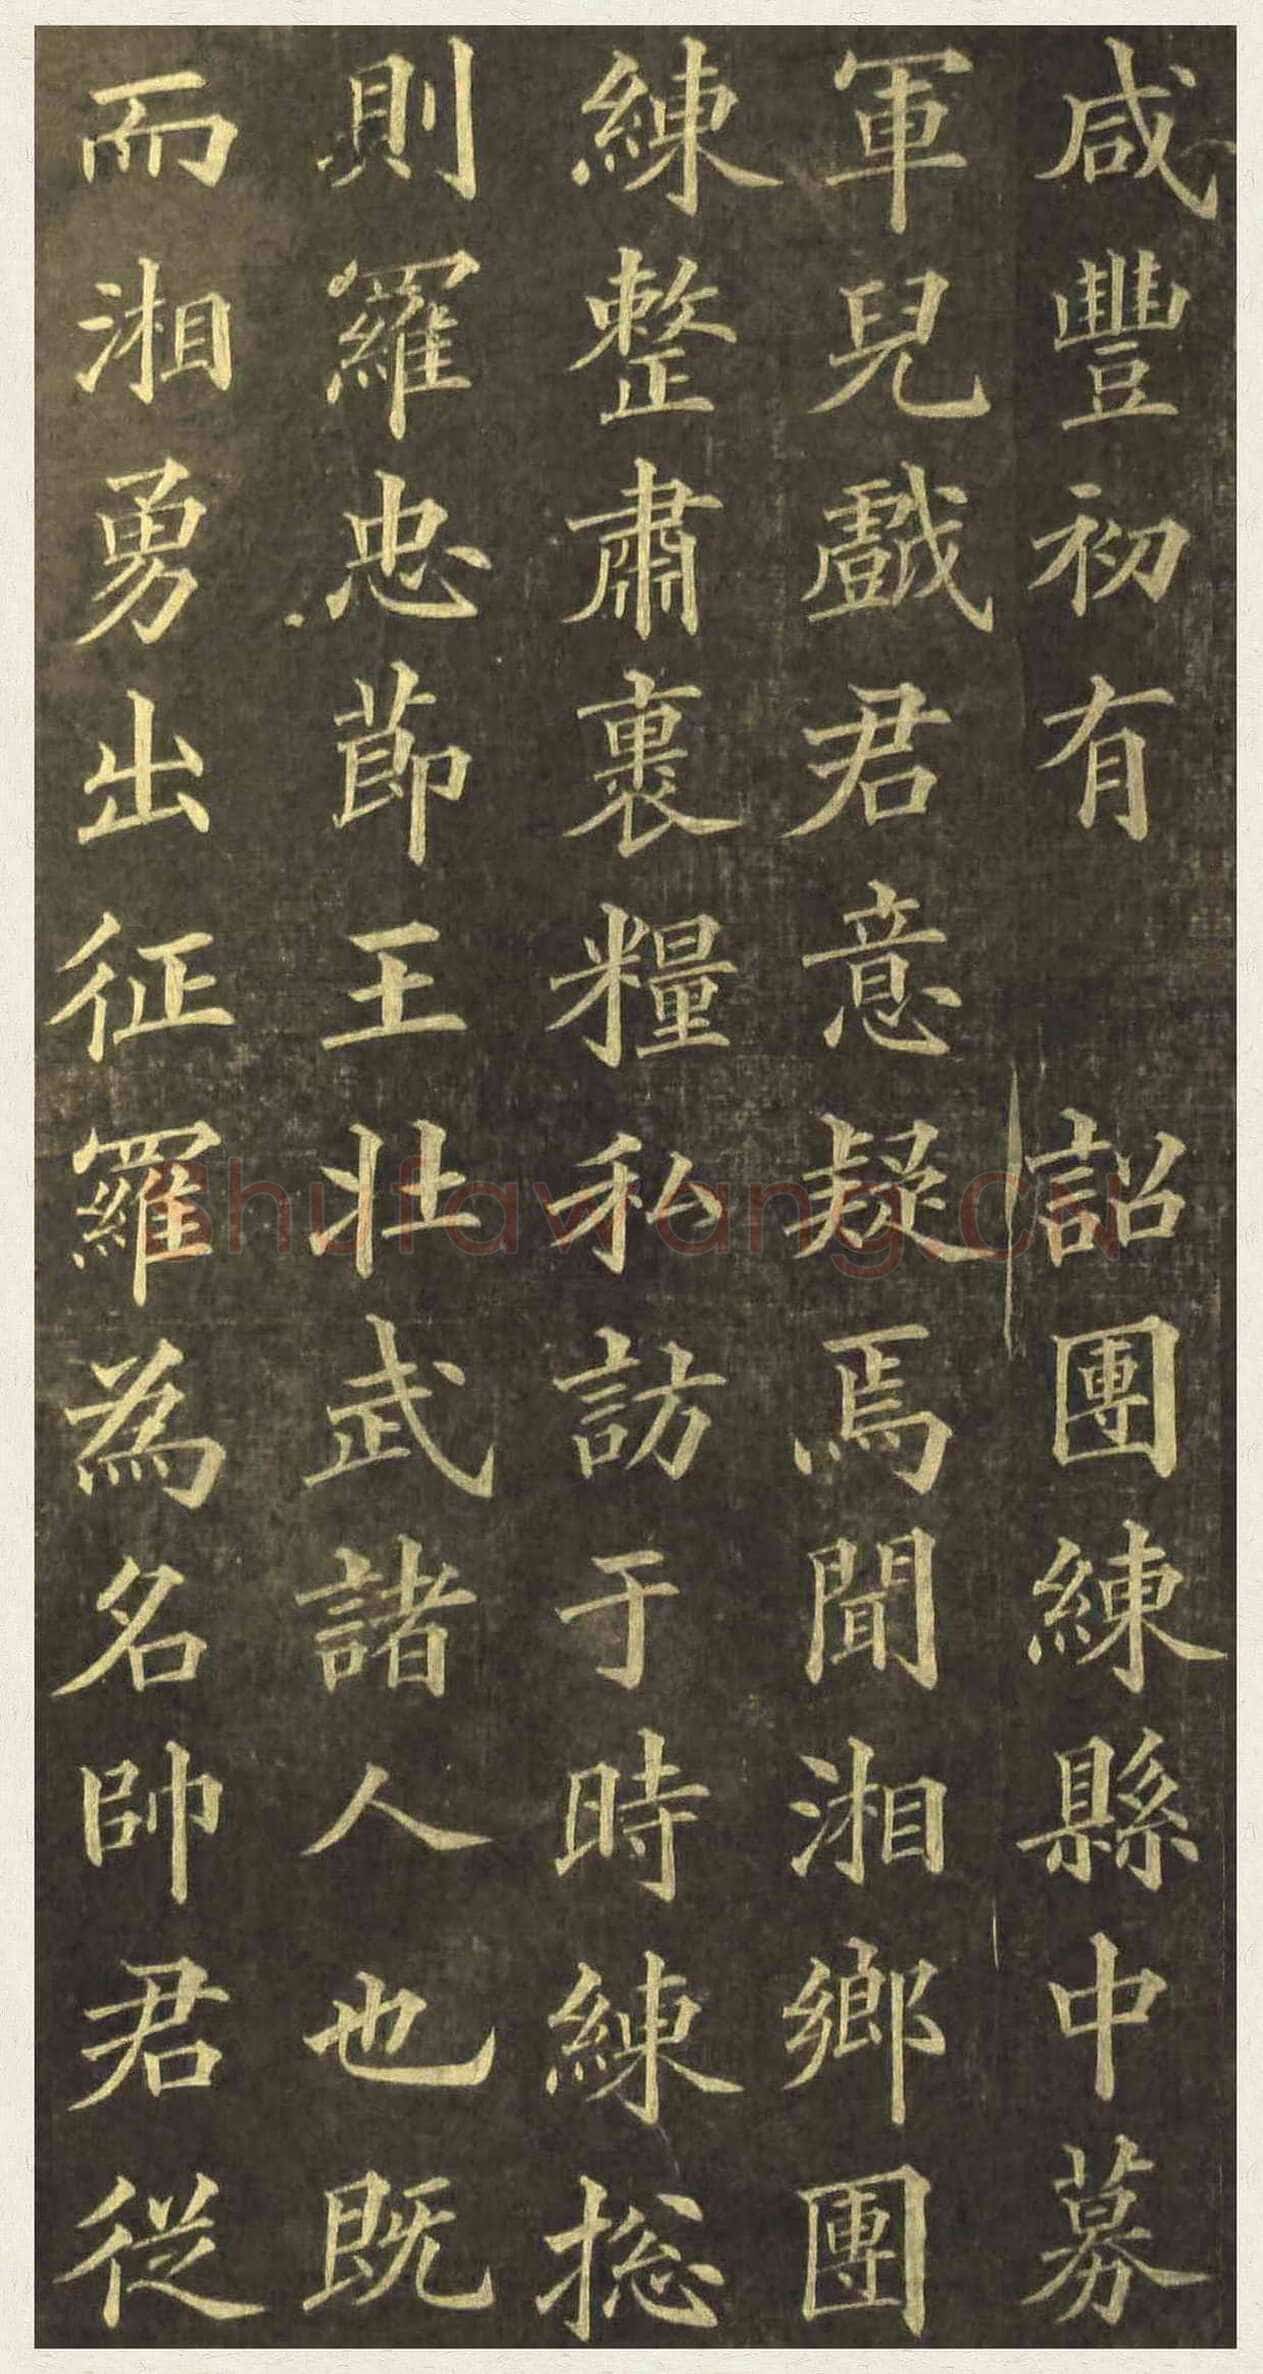 咸豐初有　詔團練縣中募
軍兒戲君意疑焉聞湘鄉團
練整肅裹糧私訪于時練捴
則羅忠節王壯武諸人也既
而湘勇出征羅為名帥君從
Shufawang.CN